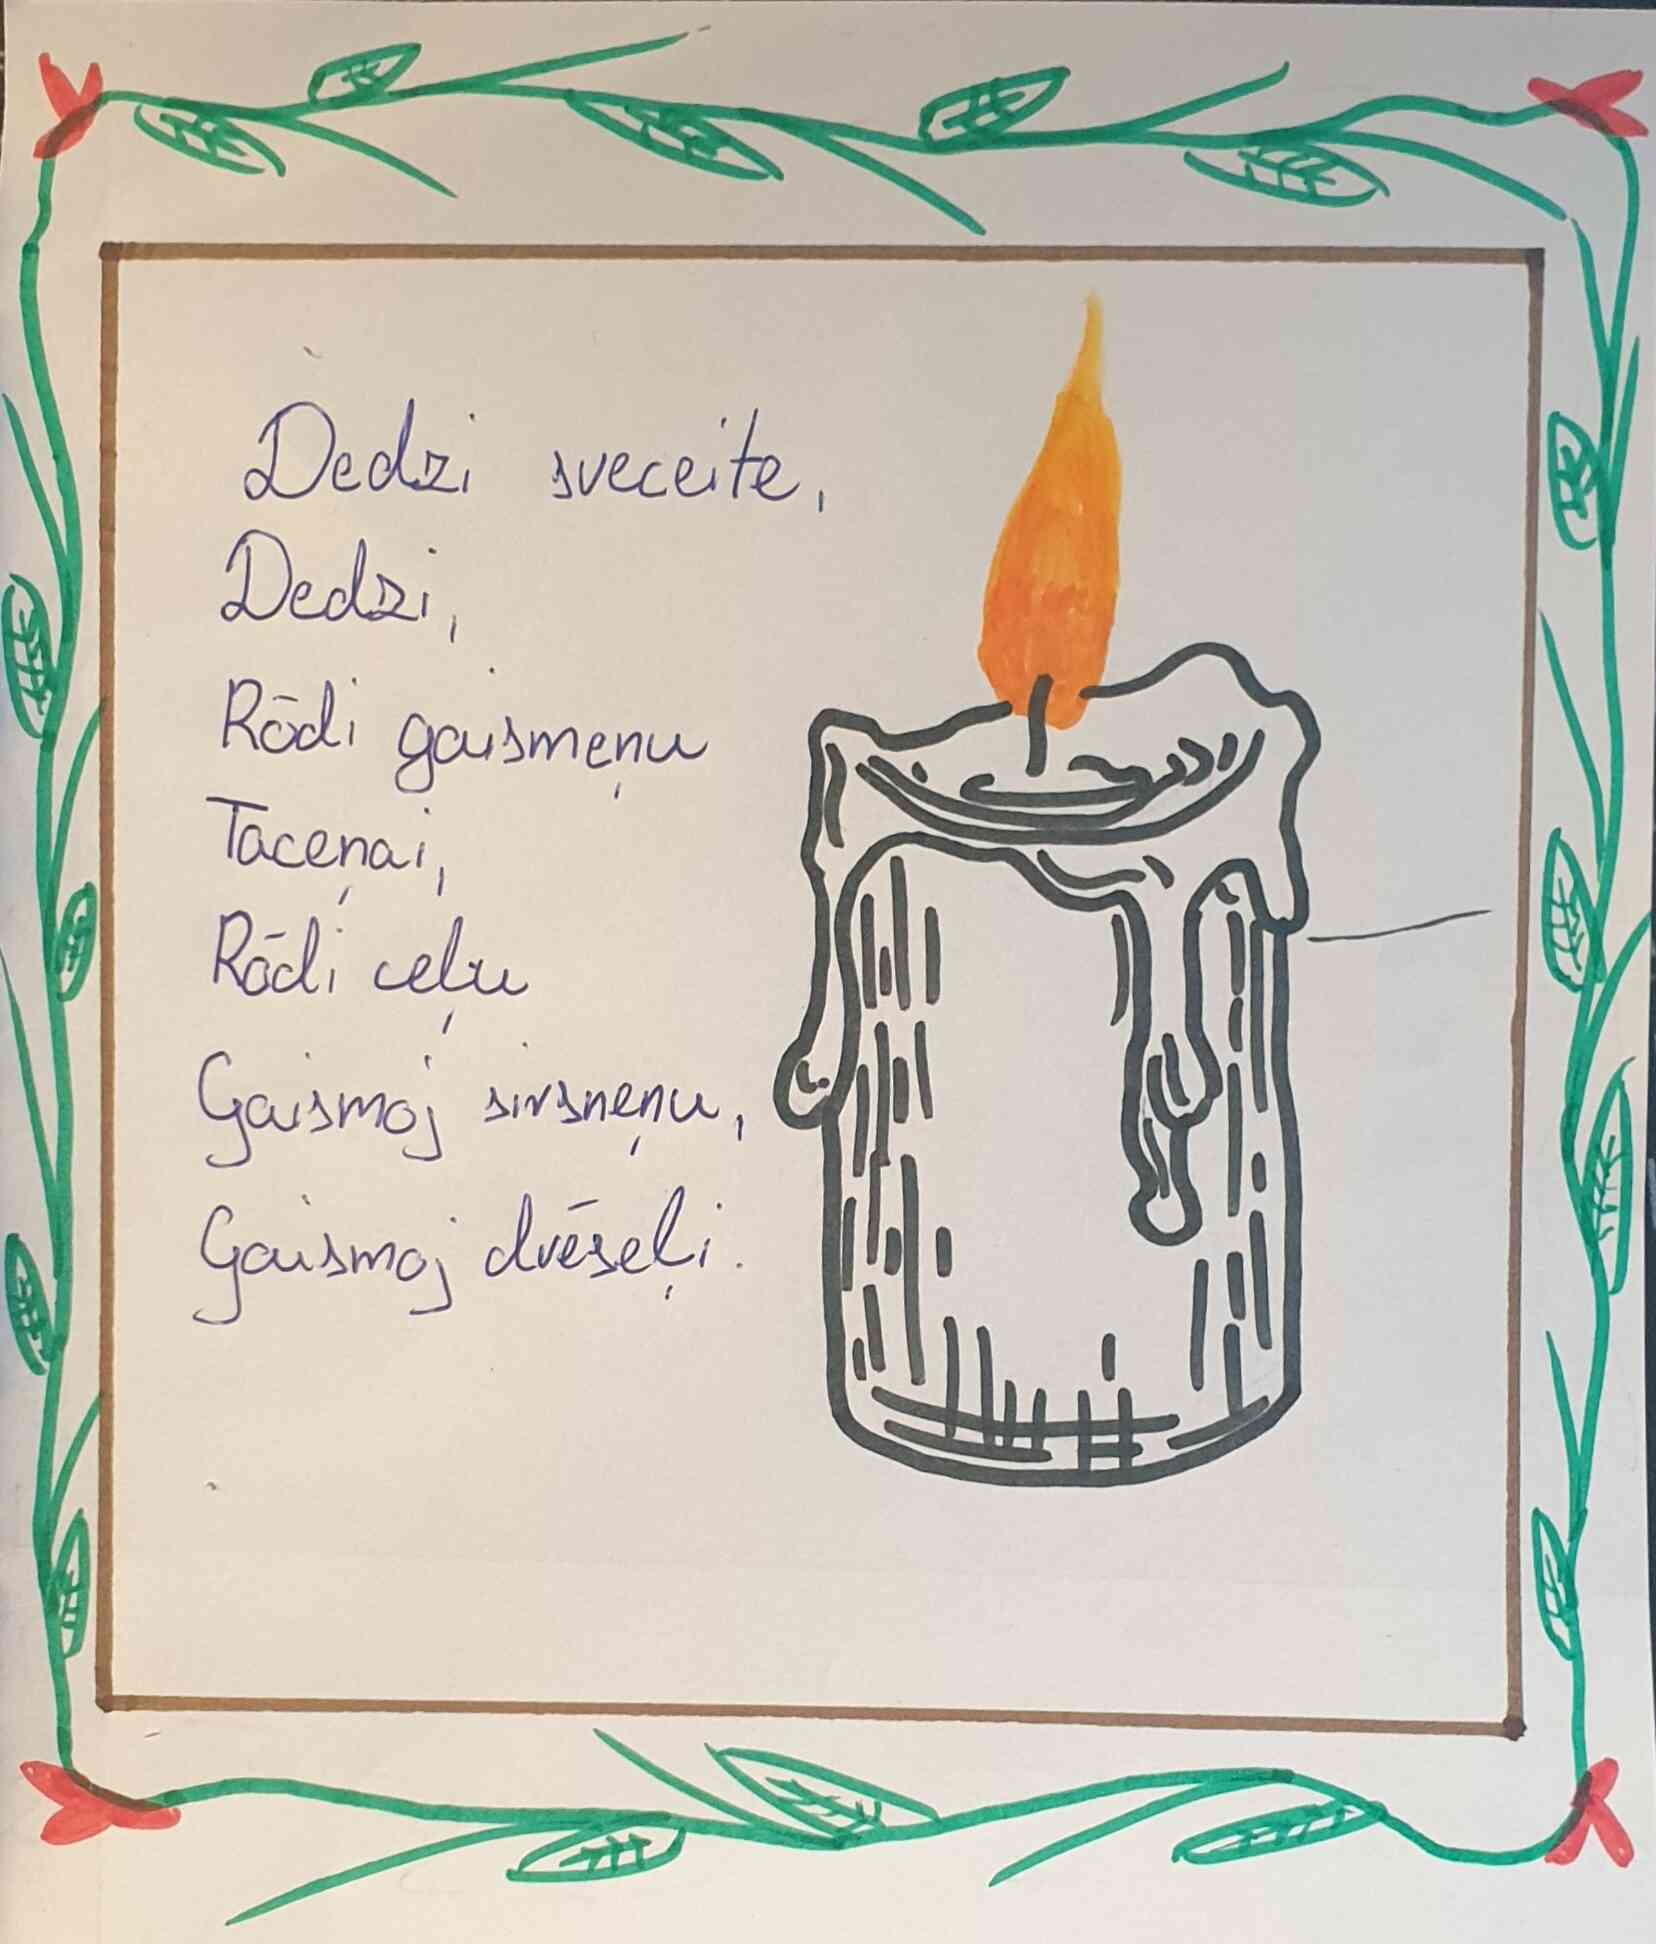 Dedzi sveceite,
Dedzi,
Rōdi gaismeņu
Taceņai,
Rōdi ceļu
Gaismoj sirsneņu,
Gaismoj dvēseļi.